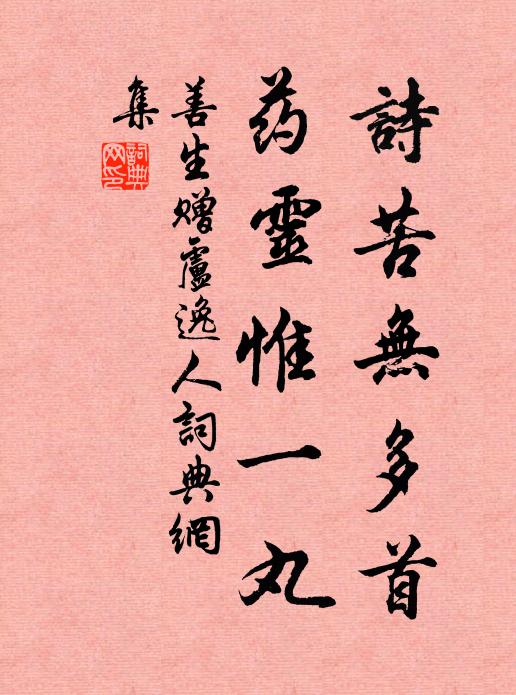 詩苦無多首
药靈惟一丸
善生贈盧逸人詞典網
集
詞典
网印